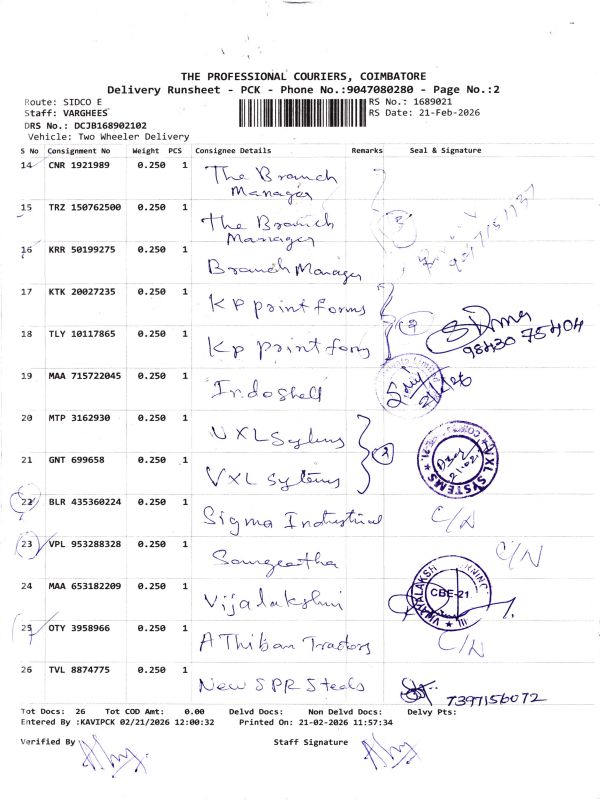 THE PROFESSIONAL COURIERS, COIMBATORE
Delivery Runsheet - PCK - Phone No.:9047080280 - Page No.:2
Route: SIDCO E
Staff: VARGHEES
DRS No.: DCJB168902102
Vehicle: Two Wheeler Delivery
RS No.: 1689021
RS Date: 21-Feb-2026
S No Consignment No Weight PCS Consignee Details Remarks Seal & Signature
14 CNR 1921989 0.250 1 The Branch
Manager
15 TRZ 150762500 0.250 1 The Branch
Manager
3
16 KRR 50199275 0.250 1 Branch Manager
17 KTK 20027235 0.250 1 KP print forms
2
18 TLY 10117865 0.250 1 Kp print form
98430 75404
19 MAA 715722045 0.250 1 Indoshell
21/2/26
20 MTP 3162930 0.250 1 VXL Systems
2
21 GNT 699658 0.250 1 VXL Systems
VXL SYSTEMS
21.02
22 BLR 435360224 0.250 1 Sigma Industrial C/N
23 VPL 953288328 0.250 1 Sangeetha C/N
24 MAA 653182209 0.250 1 Vijalakshmi
CBE-21
25 OTY 3958966 0.250 1 A Thiban Tractors C/N
26 TVL 8874775 0.250 1 New SPR Steels
7397156072
Tot Docs: 26 Tot COD Amt: 0.00 Delvd Docs: Non Delvd Docs: Delvy Pts:
Entered By :KAVIPCK 02/21/2026 12:00:32 Printed On: 21-02-2026 11:57:34
Verified By Staff Signature